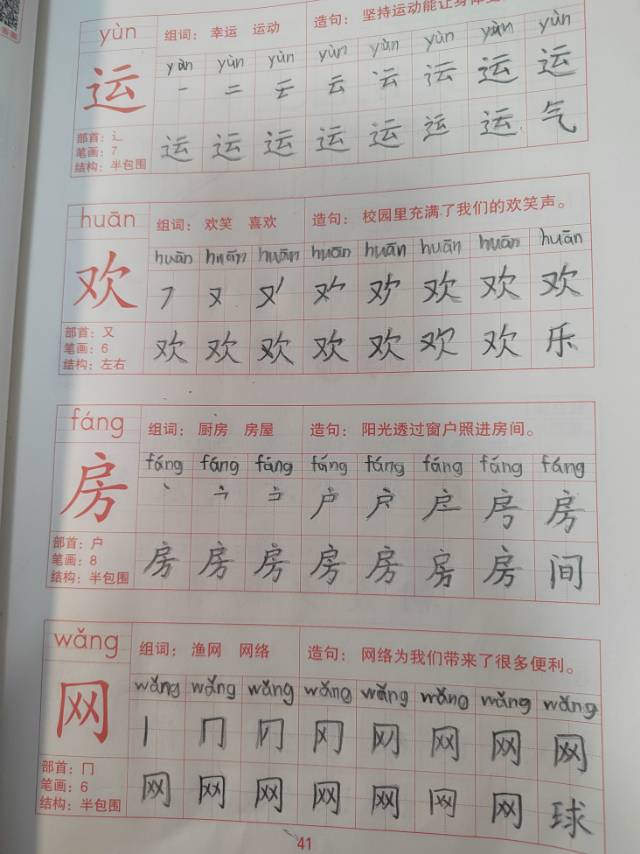 yùn
组词： 幸运 运动
造句： 坚持运动能让身体
yùn yùn yùn yùn yùn yùn yùn yùn
运
一 二 テ 云 云 沄 运 运
部首：辶
笔画：7
结构：半包围
运 运 运 运 运 运 运 气
huān
组词： 欢笑 喜欢
造句： 校园里充满了我们的欢笑声。
huān huān huān huān huān huān huān huān
欢
フ 又 欢 欢 欢 欢
部首：又
笔画：6
结构：左右
欢 欢 欢 欢 欢 欢 欢 乐
fáng
组词： 厨房 房屋
造句： 阳光透过窗户照进房间。
fáng fáng fáng fáng fáng fáng fáng fáng
房
丶 户 房 房
部首：户
笔画：8
结构：半包围
房 房 房 房 房 房 房 间
wǎng
组词： 渔网 网络
造句： 网络为我们带来了很多便利。
wǎng wǎng wǎng wǎng wǎng wǎng wǎng wǎng
网
丨 冂 冈 网 网 网
部首：冂
笔画：6
结构：半包围
网 网 网 网 网 网 网 球
41